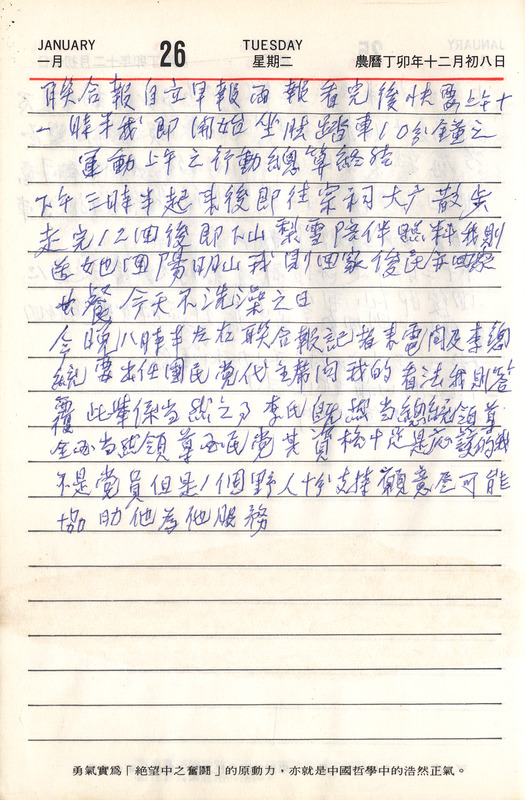 JANUARY 26 TUESDAY
一月 星期二 農曆丁卯年十二月初八日
聯合報自立早報兩報看完後快要上午十
一時半我即開始坐 踏車10分鐘之
運動上午之行動總算終結
下午三時半起來後即往宗祠大廣散步
走完12回後即下山梨雪陪伴照料我則
送她回陽明山我則回家後民
共餐 今天不洗澡之日
今晚八時半左右聯合報記者來電問及李總
統要出任國民党代主席問我的看法我則答
覆此举係当然之事李氏既然当總統領導
全 当然領導 民党其資格十足是应該的我
不是党員但是1個野人十分支持願意尽可能
協助他為他服務
勇氣實爲「絕望中之奮鬪」的原動力，亦就是中國哲學中的浩然正氣。